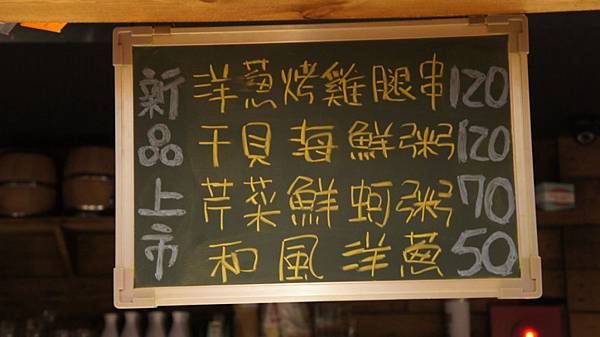 新品上市
洋蔥烤雞腿串120
干貝海鮮粥120
芹菜鮮蚵粥70
和風洋蔥50